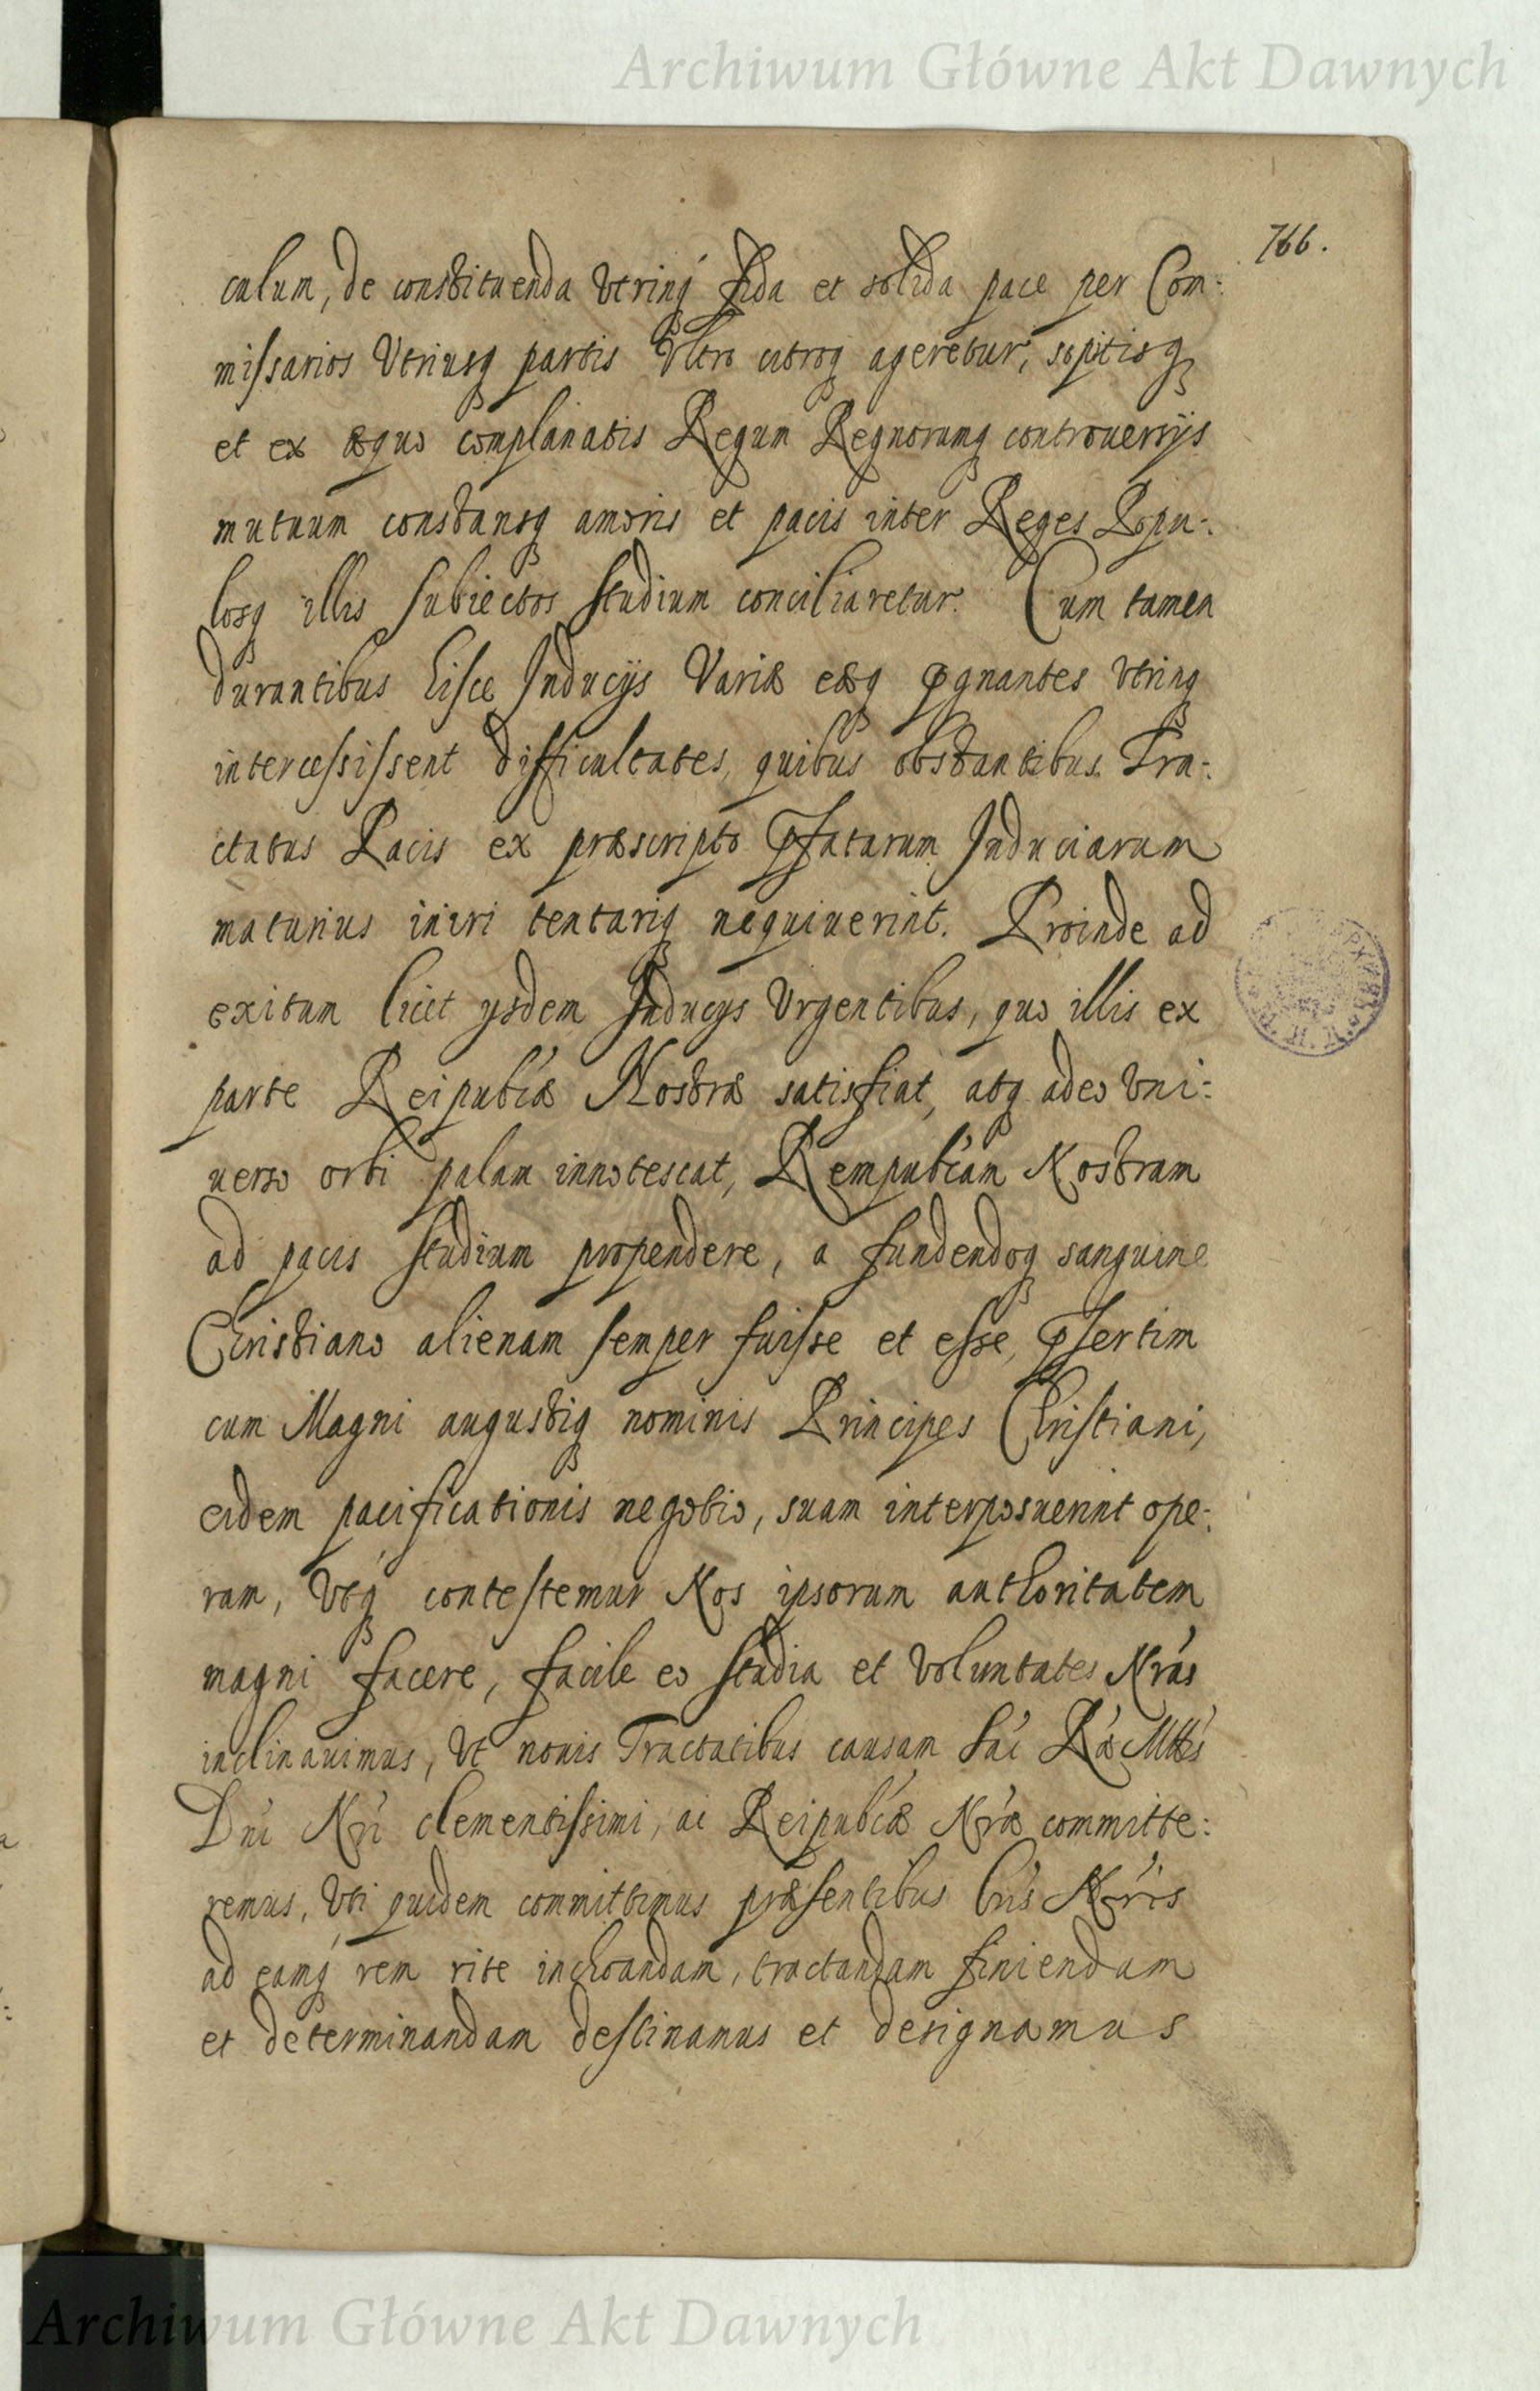 Archiwum Główne Akt Dawnych
766.
culum, de constituenda Vtrinq́ fida et solida pace per Com-:
missarios Vtriusq partis Vltro citroq ageretur, sopitisq
et ex æquo complanatis Regum Regnorumq controuersijs
mutuum constansq amoris et pacis inter Reges Popu-:
losq illis subiectos studium conciliaretur. Cum tamen
durantibus hisce Inducijs Variæ eæq pgnantes Vtrinq
intercessissent difficultates, quibus obstantibus Tra-:
ctatus Pacis ex præscripto pfatarum Induciarum
maturius iniri tentariq nequiuerint. Proinde ad
exitum licet ysdem Inducys Vrgentibus, quo illis ex
parte Reipubĺcæ Nostræ satisfiat, atq adeo Vni-:
uerso orbi palam innotescat, Rempubĺcam Nostram
ad pacis studium propendere, a fundendoq sanguine
Christiano alienam semper fuisse et esse, psertim
cum Magni augustiq nominis Principes Christiani,
eidem pacificationis negotio, suam interposuerint ope-:
ram, Vtq́ contestemur Nos ipsorum authoritatem
magni facere, facile eo studia et Voluntates Nrás
inclinauimus, Vt nouis Tractatibus causam Sáć Rǽ Mttís
Dńi Nŕi clementissimi, ac Reipubĺcæ Nŕæ committe-:
remus, Vti quidem committimus præsentibus Lrís Nŕis
ad eamq́ rem rite inchoandam, tractandam finiendam
et determinandam destinamus et designamus
Archiwum Główne Akt Dawnych